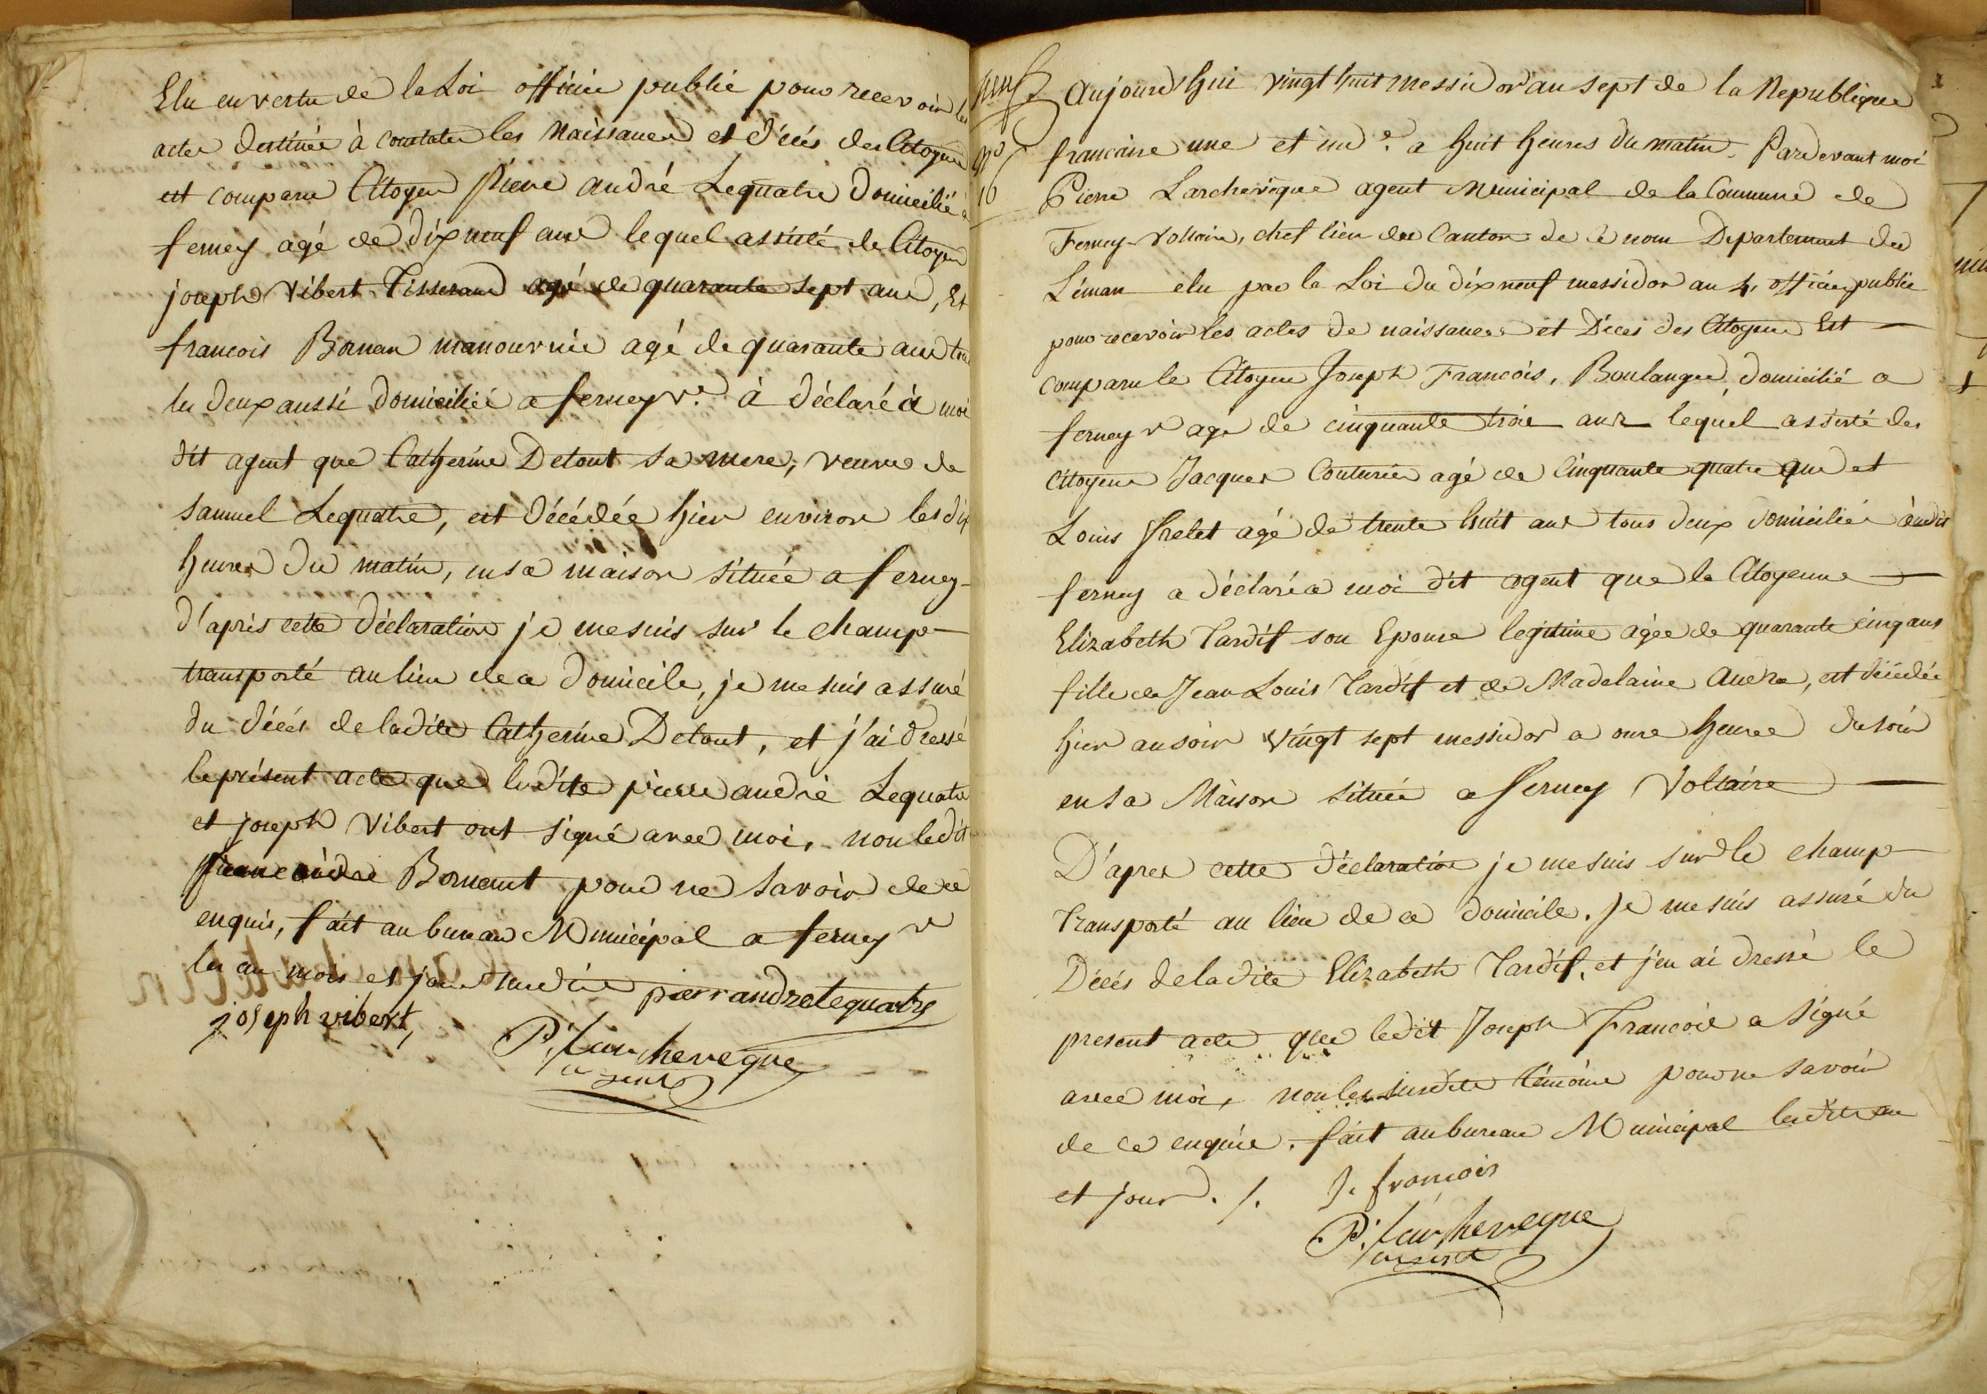 Elu en vertu de la Loi officier public pour recevoir les
actes destinés à constater les Naissances et décés des Citoyens
est comparu Citoyen Pierre andré Lequatre domicilié à
ferney agé de dix neuf ans lequel assisté de Citoyen
joseph Vibert Tisserand agé de quarante sept ans, Et
francois Bornan manouvrier agé de quarante ans tous
les deux aussi domicilié a ferney v.e à déclaré à moi
dit agent que Catherine Detout sa mere, veuve de
samuel Lequatre, est décédée hier environ les dix
heures du matin, en sa maison située a ferney
d'après cette déclaration je me suis sur le champ
transporté au lieu de ce domicile, je me suis assuré
du décés de ladite Catherine Detout, et j'ai dressé
le présent acte que ledite pierre andré Lequatre
et joseph Vibert ont signé avec moi, non ledit
Bornant pour ne savoir de ce
enquis, fait au bureau Municipal a ferney v
les an mois et jour susdits pierrandrelequatre
joseph vibert,
P. Larcheveque
agent
neuf
N.o
16
Aujourd'hui vingt huit messidor an sept de la Republique
francaise une et ind.e a huit heures du matin. Pardevant moi
Pierre Larchevêque agent Municipal de la Commune de
Ferney-Voltaire, chef lieu du Canton de ce nom Departement du
Léman elu par la Loi du dix neuf messidor an 4, officier public
pour recevoir les actes de naissances et Décés des Citoyens Est
comparu le Citoyen Joseph Francois, Boulanger domicilié a
ferney v agé de cinquante trois ans lequel assisté des
citoyens Jacques Couturier agé de Cinquante quatre ans et
Louis frelet agé de trente huit ans tous deux domiciliés audit
ferney a déclaré a moi dit agent que la Citoyenne
Elizabeth Tardif son Epouse legitime agée de quarante cinq ans
fille de Jean Louis Tardif et de Madelaine Andre, est décédée
hier au soir vingt sept messidor a onze heures du soir
en sa Maison située a ferney Voltaire
D'apres cette déclaration je me suis sur le champ
Transporté au lieu de ce domicile. Je me suis assuré du
Décés de ladite Elizabeth Tardif, et j'en ai dressé le
present acte que ledit Joseph Francois a Signé
avec moi, non les susdits témoins pour ne savoir
de ce enquis. fait au bureau Municipal lesdits an
et jour. /. J. francois
P. Larcheveque
agent